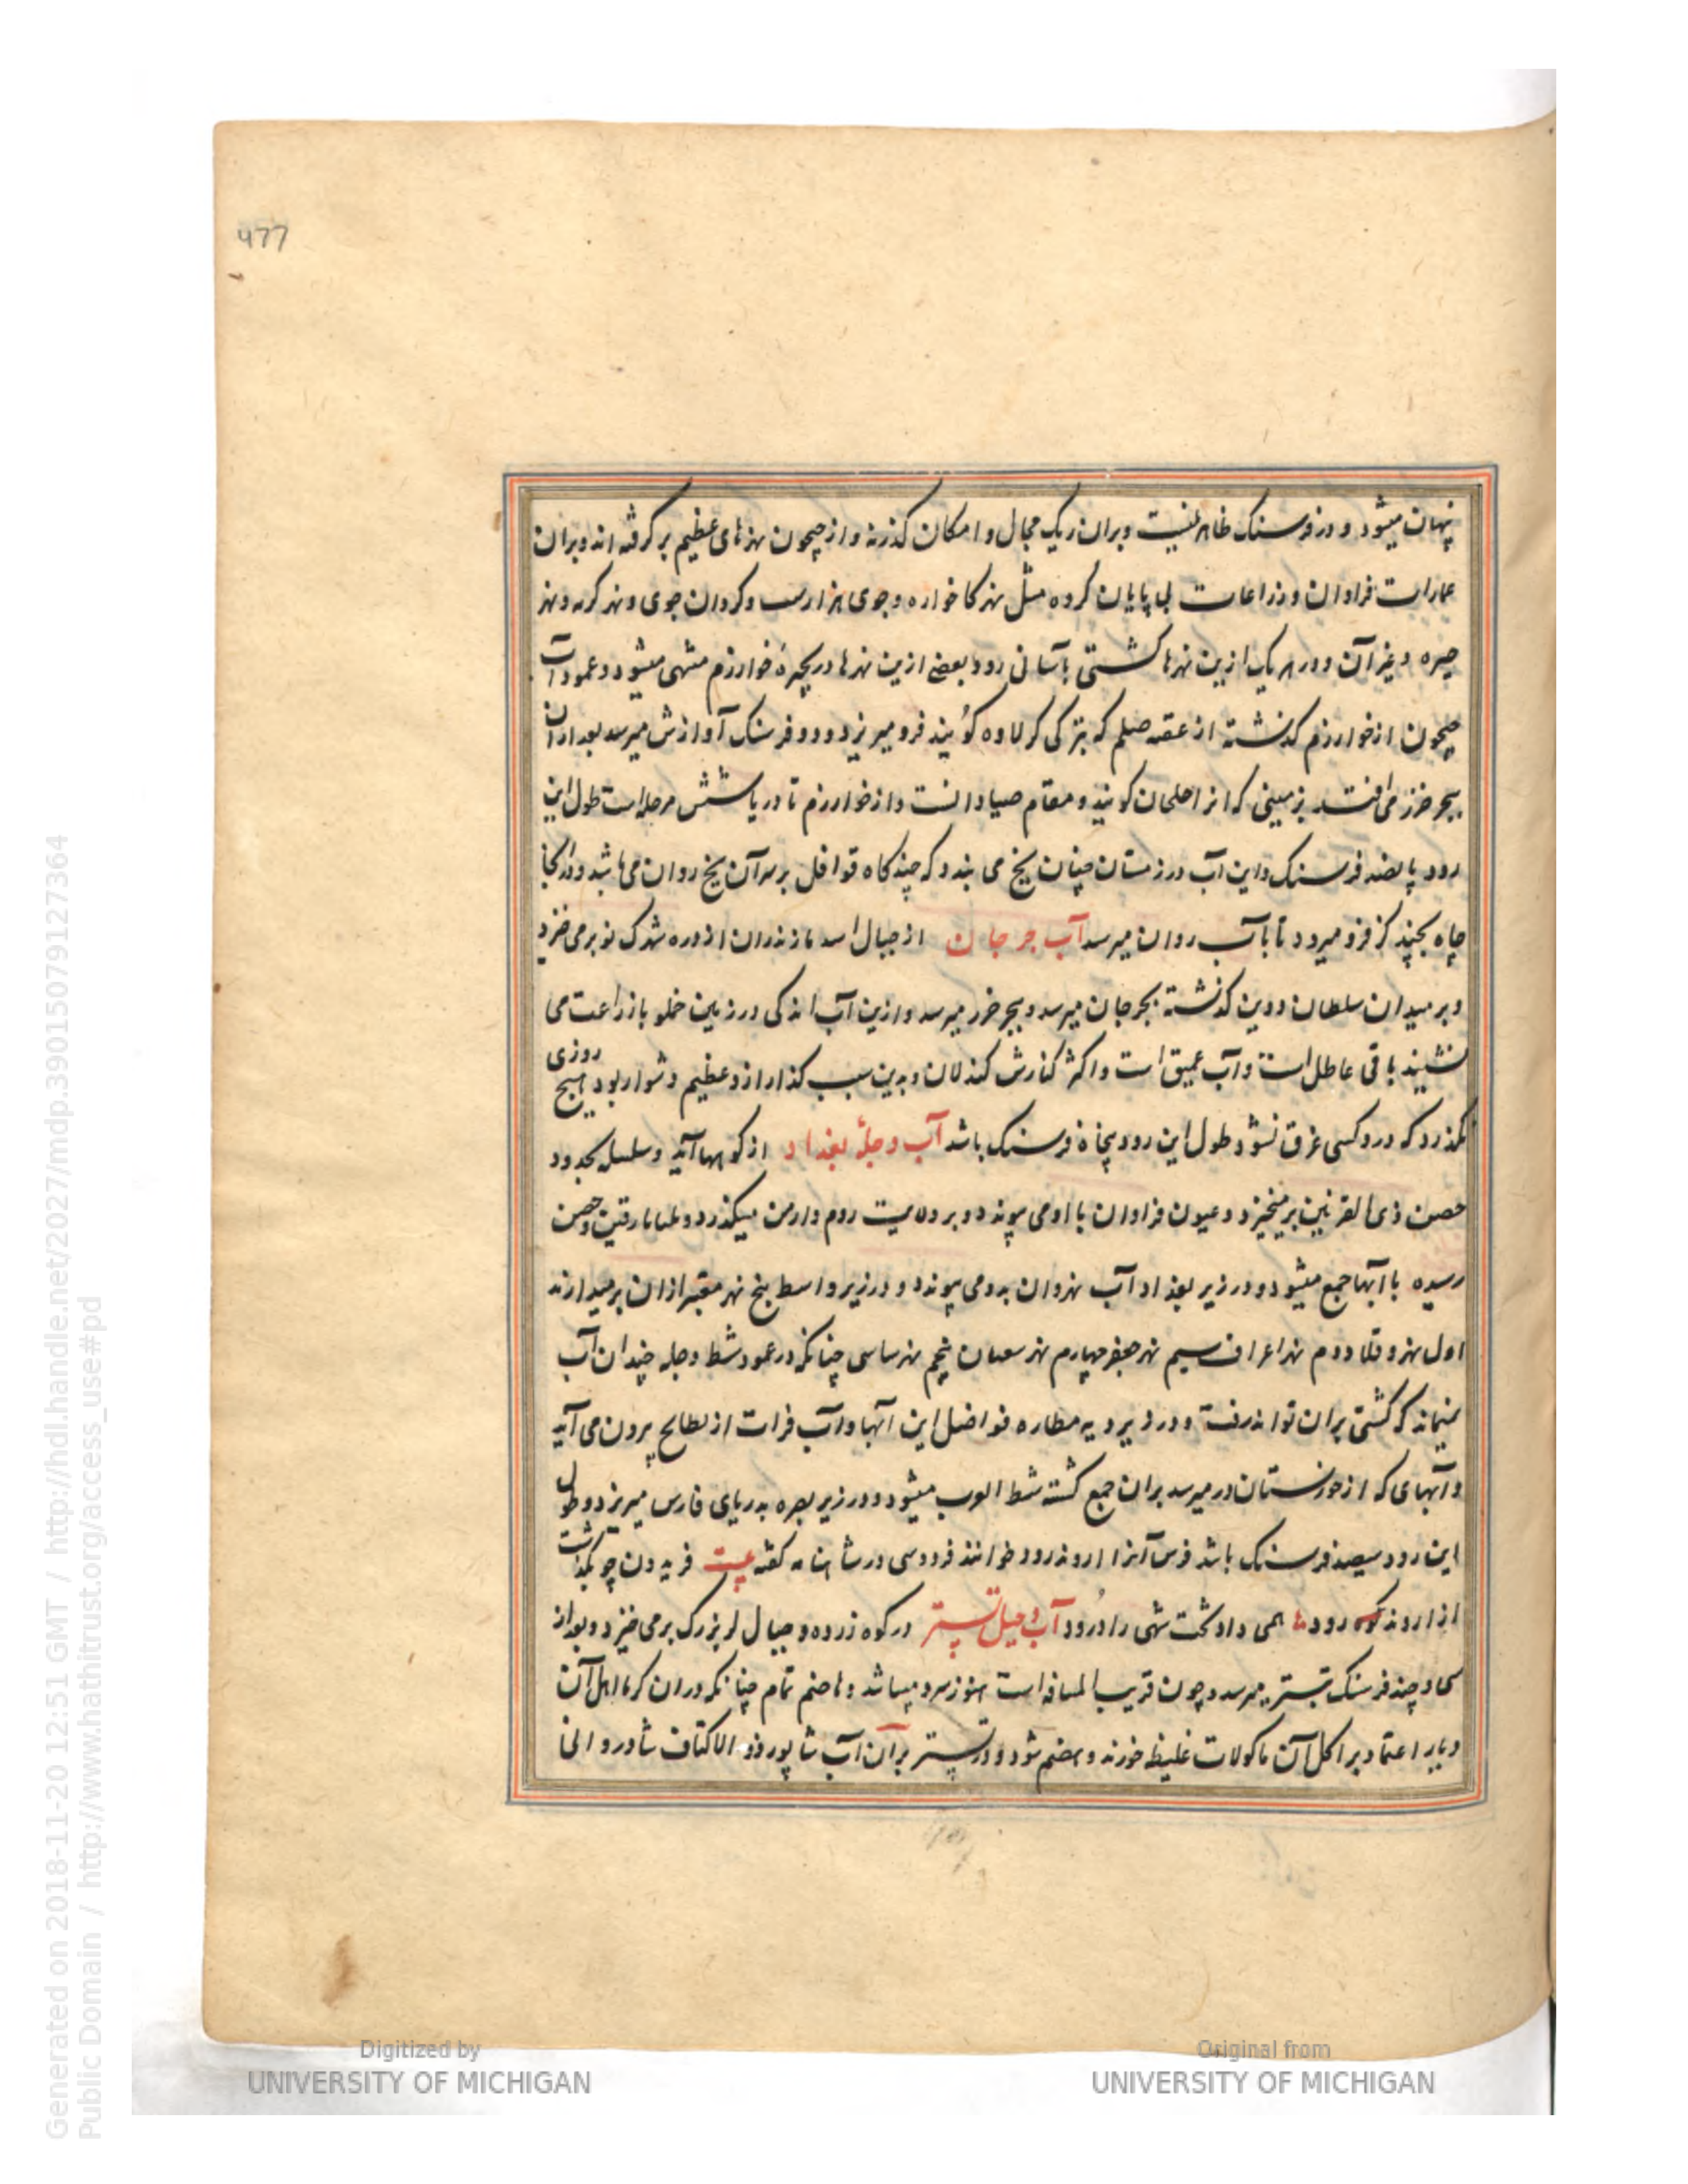 477
نهان میشود و در فرسنک ظاهر نیست و بران ریک مجال و امکان کذرنه و از جیحون نهرهای عظیم برکرفته اند و بران
عمارات فراوان و زراعات بی پایان کرده مثل نهر کاخواره و جوی هزارسب و کردان جوی و نهر کربه و نهر
حیره و غیر آن و در هر یک ازین نهرها کشتی بآسانی رود بعضی ازین نهرها در بحیرهٔ خوارزم منتهی میشود و عمود آب
جیحون از خوارزم کذشته از عقبه حلم که بترکی کرلاوه کویند فرو میریزد و دو فرسنک آوازش میرسد بعد ازان
ببحر خزر می افتد بزمینی که انرا حلحان کویند و مقام صیادانست و از خوارزم تا دریا شش مرحله است طول این
رود پانصد فرسنک و این آب در زمستان چنان یخ می بندد که چندکاه قوافل بر سر آن یخ روان می باشد و در آنجا
چاه بچند کز فرو میرود تا بآب روان میرسد آب جرجان از جبال اسد مازندران از دره شهرک نو برمی خزد
و بر میدان سلطان دوین کذشته بجرجان میرسد و ببحر خزر میرسد و ازین آب اندکی در زمین خملو بازراعت می
نشیند باقی عاطل است و آب عمیق است و اکثر کنارش کندلان و بدین سبب کذار ازو عظیم دشوار بود هیچ روزی
نکذرد که درو کسی غرق نشود طول این رود پنجاه فرسنک باشد آب دجلهٔ بغداد از کوهها آید و سلسله بحدود
حصن ذی القرنین برمیخیزد و عیون فراوان با او می پیوندد و بر ولایت روم و ارمن میکذرد و بمیافارقین و حصن
رسیده با آبها جمع میشود و در زیر بغداد آب نهروان بدو می پیوندد و در زیر واسط پنج نهر معتبر ازان برمیدارند
اول نهر وقلا دوم نهر اعراف سیم نهر جعفر چهارم نهر سعیان پنجم نهر ساسی چنانکه در عمود شط دجله چندان آب
نمیماند که کشتی بران تواند رفت و در زیر دیه مطاره فواضل این آبها و آب فرات از بطایح برون می آید
و آبهای که از خوزستان در میرسد بران جمع کشته شط العرب میشود و در زیر بصره بدریای فارس میریزد و طول
این رود سیصد فرسنک باشد فرس آنرا اروند رود خوانند فردوسی در شاهنامه کفته بیت فریدون چو بکذشت
از اروند کوه رود ها همی داد تخت شهی را درود آب دجیل تستر در کوه زرده و جبال لر بزرک برمی خیزد و بعد از
سی و چند فرسنک بتستر میرسد و چون قریب المسافه است هنوز سرد میباشد و هاضم تمام چنانکه دران کرما اهل آن
دیار اعتماد بر اکل آن ماکولات غلیظ خورند و هضم شود و در تستر بر آن آب شاپور ذو الاکتاف شادروانی
Generated on 2018-11-20 12:51 GMT / http://hdl.handle.net/2027/mdp.39015079127364
Public Domain / http://www.hathitrust.org/access_use#pd
Digitized by
UNIVERSITY OF MICHIGAN
Original from
UNIVERSITY OF MICHIGAN